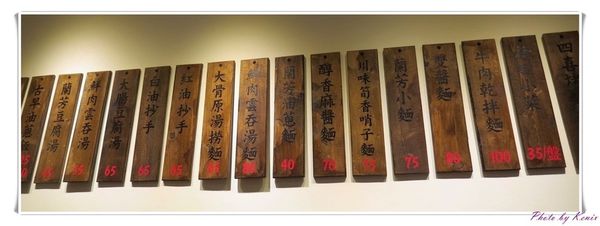 古早油蔥
蘭芳豆腐湯
鮮肉雲吞湯
65
大腸豆腐湯
65
白油抄手
65
紅油抄手
65
大骨原湯撈麵
鮮肉雲吞湯麵
蘭芳油蔥麵
40
醇香麻醬麵
70
川味筍香哨子麵
75
蘭芳小麵
75
雙醬麵
80
牛肉乾拌麵
100
小菜
35/盤
四
Photo by Kenix